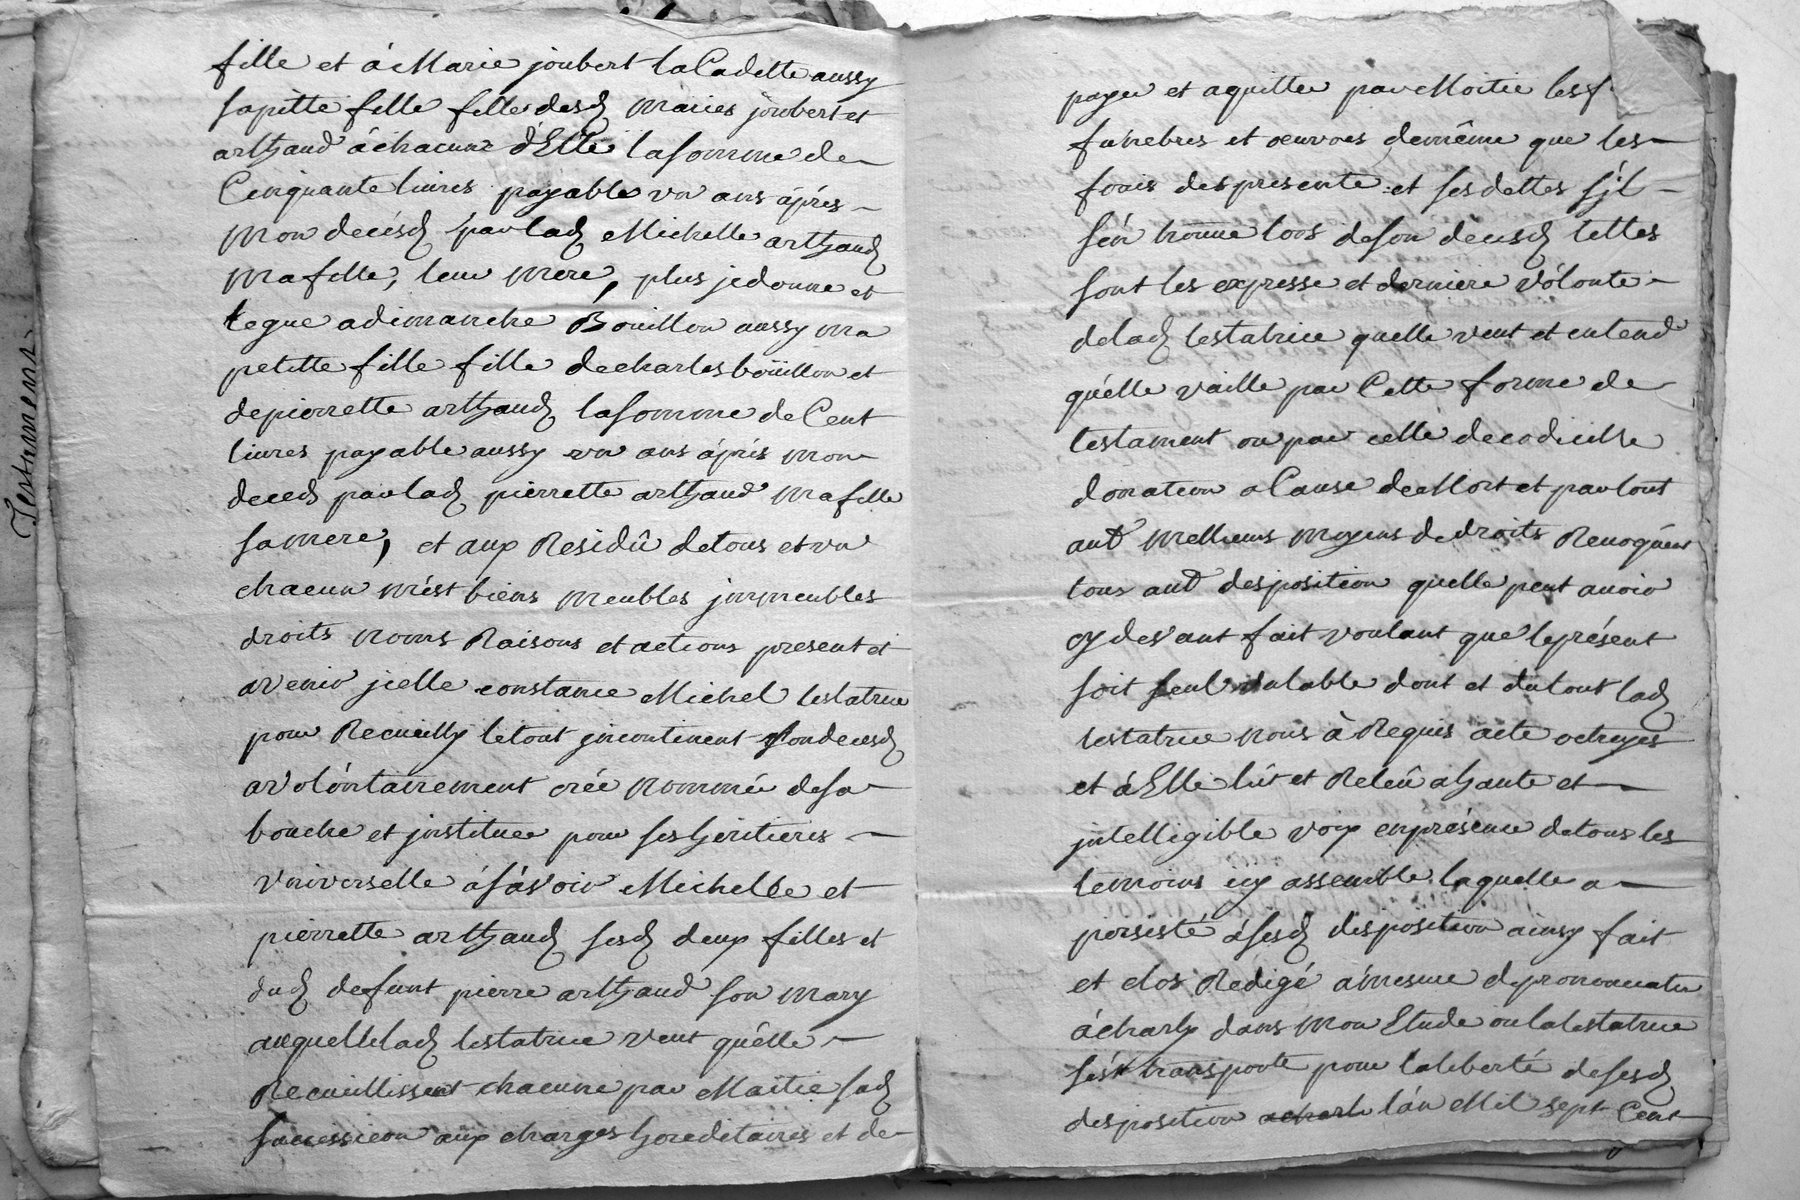 Testament
fille et á Marie joubert la Cadette aussy
sa pètte fille fille desd maries joubert et
arthaud á chacune d'Elle la somme de
Cinquante livres payable un ans áprés
mon decésd par lad Michelle arthaud
ma fille, leur mere, plus je donne et
legue a dimanche Bouillon aussy ma
petitte fille fille de charles boüillon et
de pierrette arthaud la somme de Cent
livres payable aussy un ans áprés mon
deced par lad pierrette arthaud ma fille
sa mere, et aux Residû de tous et un
chacun mést biens meubles jmmeubles
droits noms Raisons et actions present et
avenir jcelle constance Michel testatrice
pour Recueilly le tout jncontinent son decesd
a volóntairement créé nommée de sa
bouche et jnstituee pour ses héritieres
Universelle á sávoir Michelle et
pierrette arthaud sesd deux filles et
dud defunt pierre arthaud son mary
auquelle lad testatrice veut quélle
Recueillissent chacune par Maitie sad
sucession aux charges hereditaires et de
payer et aquitter par Moitie les f
funebres et oeuvres de même que les
frais des presente et ses dettes s'jl
sén trouve lors de son décesd telles
sont les expresse et derniere vólonte
de lad testatrice quelle veut et entend
quélle vaille par Cette forme de
testament ou par celle de codicille
donation a Cause de Mort et par tout
aut meilleurs moyens de droits Revoquént
tous aut desposition quelle peut avoir
cy devant fait voulant que le présent
soit seul valable dont et du tout lad
testatrice nous à Requis acte octroyés
et á Elle lût et Releû a haute et
jntelligible voix en présence de tous les
temoins cy assemble laquelle a
persisté á sesd disposition ainsy fait
et clos Redigé á mesure de prononciation
á charly dans mon Etude ou la testatrice
sést transporte pour la liberté de sesd
desposition acharl lán Mil sept Cent